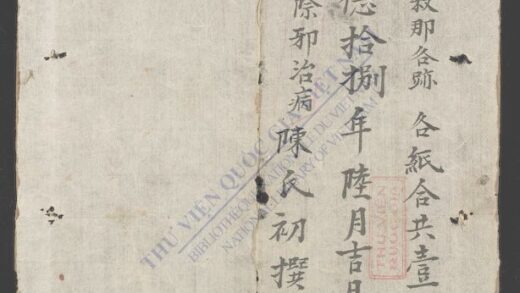 那各跡 各紙合共壹
德拾捌年陸月吉日
除邪治病 陳氏初撰
THƯ VIỆN QUỐC GIA VIỆT NAM
BIBLIOTHÈQUE NATIONALE DU VIETNAM
NATIONAL LIBRARY OF VIETNAM